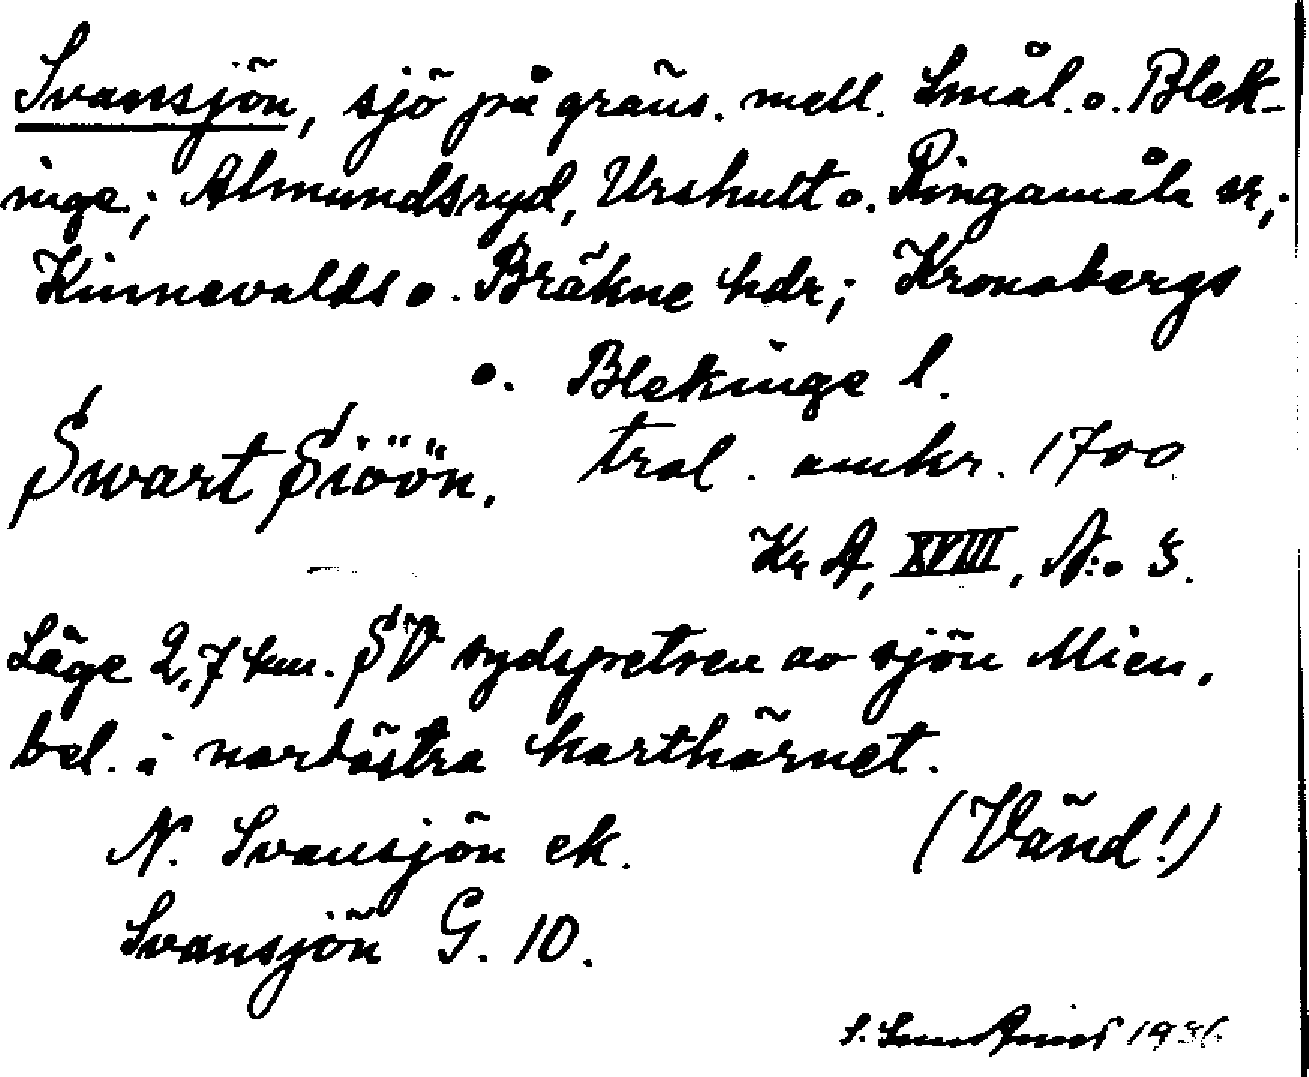 Svansjön, sjö på gräns. mell. Smål. o. Blek-
inge; Almundsryd, Urshult o. Ringamåla sn,;
Kinnevalds o. Bräkne hdr; Kronobergs
o. Blekinge l.
Swart Siöön. trol. omkr. 1700
Kr A, XVIII, N:o 3.
Läge 2,7 km. SV sydspetsen av sjön Mien,
bel. i nordöstra karthörnet.
N. Svansjön ek. (Vänd!)
Svansjön G. 10.
S. 1936